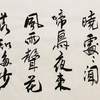 曉處々聞
啼鳥夜来
風雨聲花
落知多少